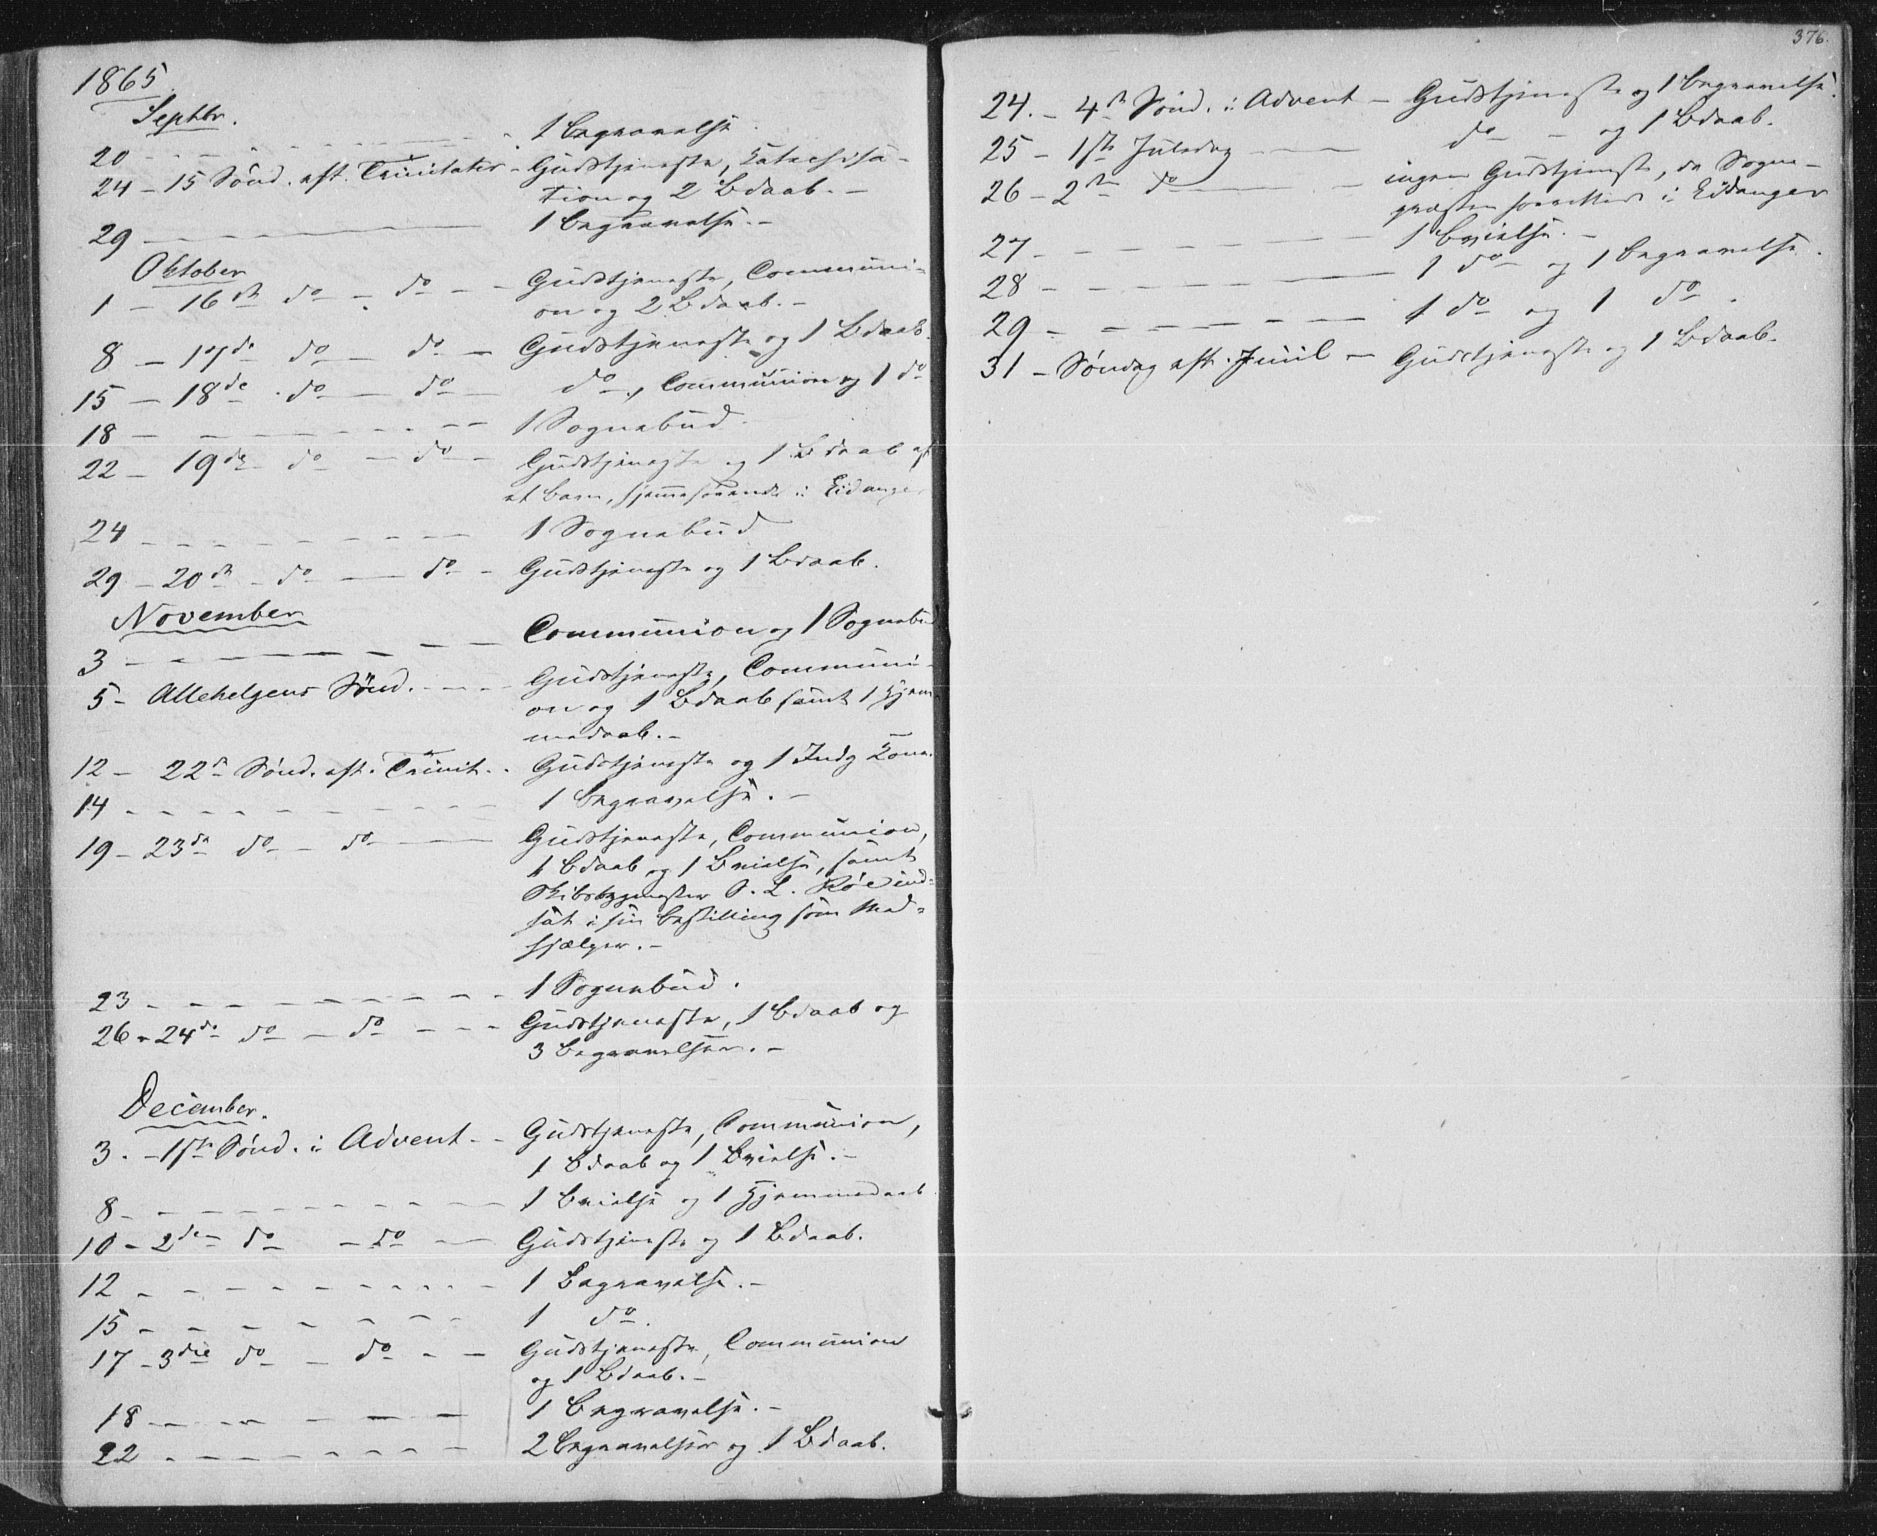 1865.
Septbr.
20 - - - - - - 1 Begravelse.
24 - 15 Sönd. eft. Trinitatis - Gudstjeneste, Katechisa-
tion og 2 Bdaab. -
29 - 1 Begravelse. -
Oktober
1 - 16de do - do - - Gudstjeneste, Communi-
on og 2 Bdaab. -
8 - 17de do - do - Gudstjeneste og 1 Bdaab.
15 - 18de do - do - do, Communion og 1 do
18 - - - - - 1 Sognebud.
22 - 19de do - do - Gudstjeneste og 1 Bdaab af
et Barn, hjemmehørende i Eidanger
24 - - - - - - 1 Sognebud
29 - 20de - do - do - Gudstjeneste og 1 Bdaab.
November
3 - - - - - - Communion og 1 Sognebud
5 - Allehelgens Sönd. - - - Gudstjeneste, Communi-
on og 1 Bdaab samt 1 Hjem-
medaab. -
12 - 22de Sönd. eft. Trinit. - Gudstjeneste og 1 Indg Kone.
14 - - - - - - 1 Begravelse. -
19 - 23de do - do - Gudstjeneste, Communion,
1 Bdaab og 1 Bvielse, samt
Skibsbygmester P. L. Röe ind-
sat i sin Bestilling som Med-
hjælper. -
23 - - - - - - 1 Sognebud.
26 - 24de do - do - - - Gudstjeneste, 1 Bdaab og
3 Begravelser. -
December.
3. - 1ste Sönd. i Advent - - Gudstjeneste, Communion,
1 Bdaab og 1 Bvielse. -
8 - - - - - - 1 Bvielse og 1 Hjemmedaab
10 - 2den do - do - Gudstjeneste og 1 Bdaab.
12 - - - - - - 1 Begravelse. -
15 - - - - - - 1 do.
17 - 3die do - do - - Gudstjeneste, Communion
og 1 Bdaab. -
18 - - - - - 1 Begravelse. -
22 - - - - - - 2 Begravelser og 1 Bdaab.
376.
24. - 4de Sönd. i Advent - Gudstjeneste og 1 Begravelse.
25 - 1ste Juledag - - do - og 1 Bdaab.
26 - 2den do - - ingen Gudstjeneste, da Sogne-
præsten forrettede i Eidanger
27 - - - - - - 1 Bvielse. -
28 - - - - - - 1 do og 1 Begravelse.
29 - - - - - - 1 do og 1 do.
31 - Söndag eft. Juul - Gudstjeneste og 1 Bdaab.